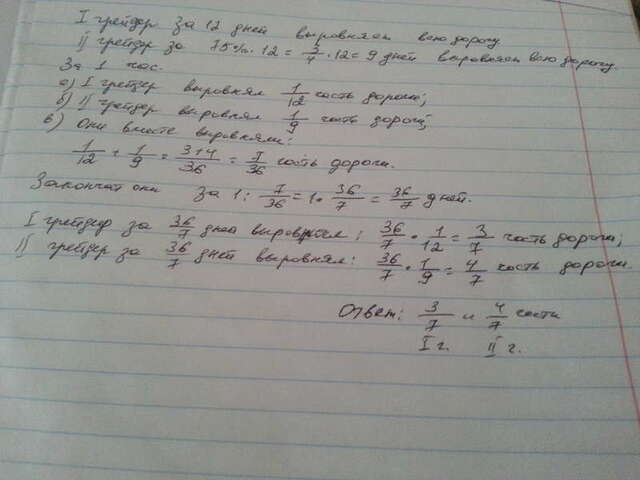 I грейдер за 12 дней выровняет всю дорогу
II грейдер за 75%·12 = 3/4·12 = 9 дней выровняет всю дорогу.
За 1 час.
а) I грейдер выровнял 1/12 часть дороги;
б) II грейдер выровнял 1/9 часть дороги;
в) Они вместе выровняли:
1/12 + 1/9 = 3+4/36 = 7/36 часть дороги.
Закончат они за 1 : 7/36 = 1 · 36/7 = 36/7 дней.
I грейдер за 36/7 дней выровнял: 36/7 · 1/12 = 3/7 часть дороги;
II грейдер за 36/7 дней выровнял: 36/7 · 1/9 = 4/7 часть дороги.
Ответ: 3/7 и 4/7 части
I г. II г.